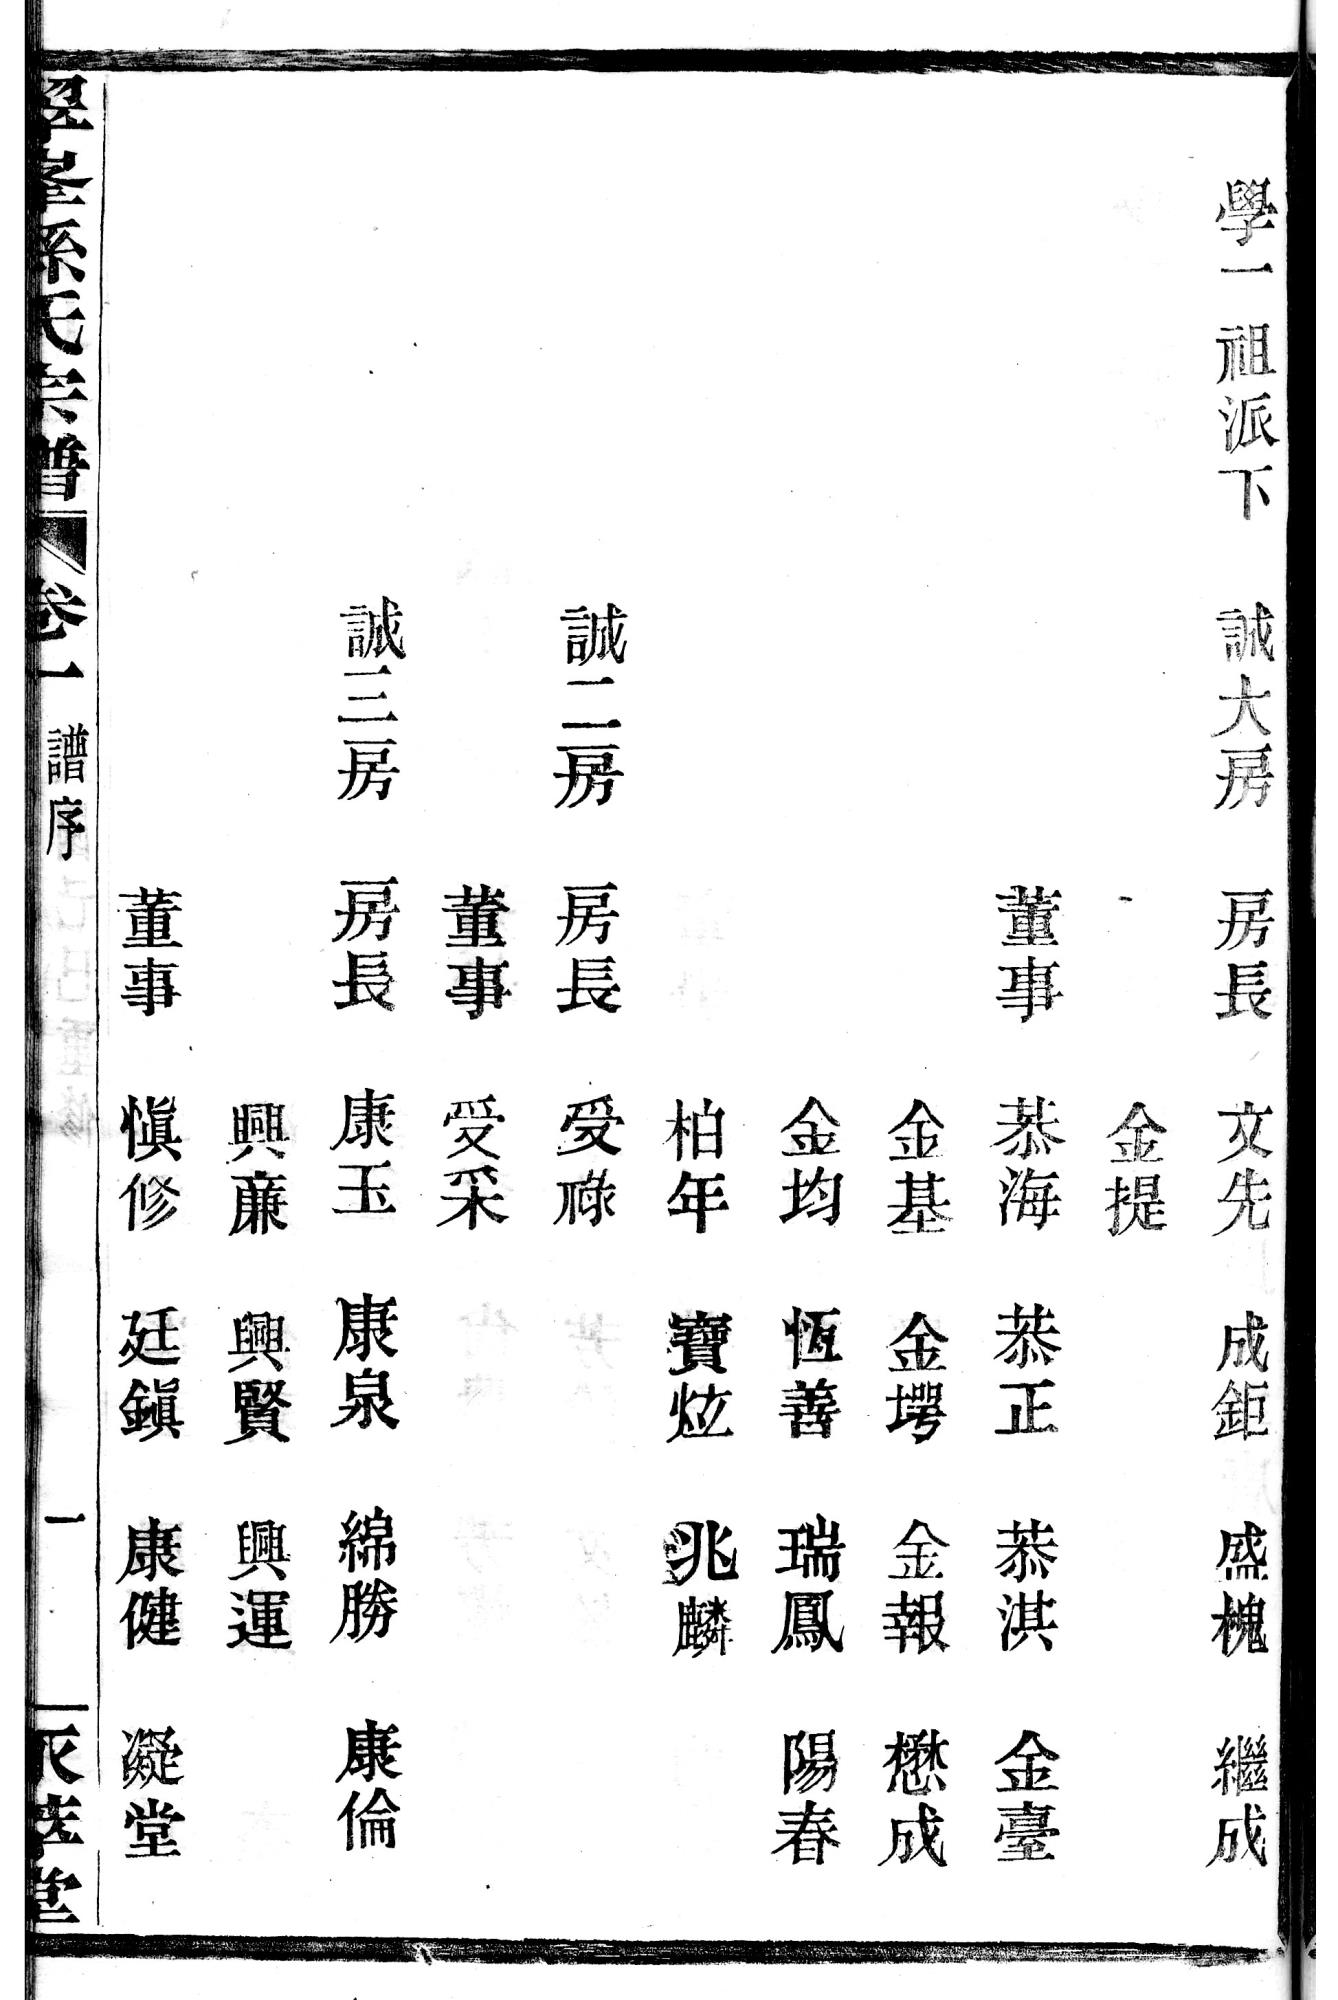 學一祖派下　誠大房　房長　文先　成鉅　盛槐　繼成
金提
董事　恭海　恭正　恭淇　金臺
金基　金堮　金報　懋成
金均　恆善　瑞鳳　陽春
柏年　寶炫　兆麟
誠二房　房長　受祿
董事　受采
誠三房　房長　康玉　康泉　綿勝　康倫
興廉　興賢　興運
董事　愼修　廷鎭　康健　凝堂
峯孫氏宗譜　卷一　譜序　一　堂